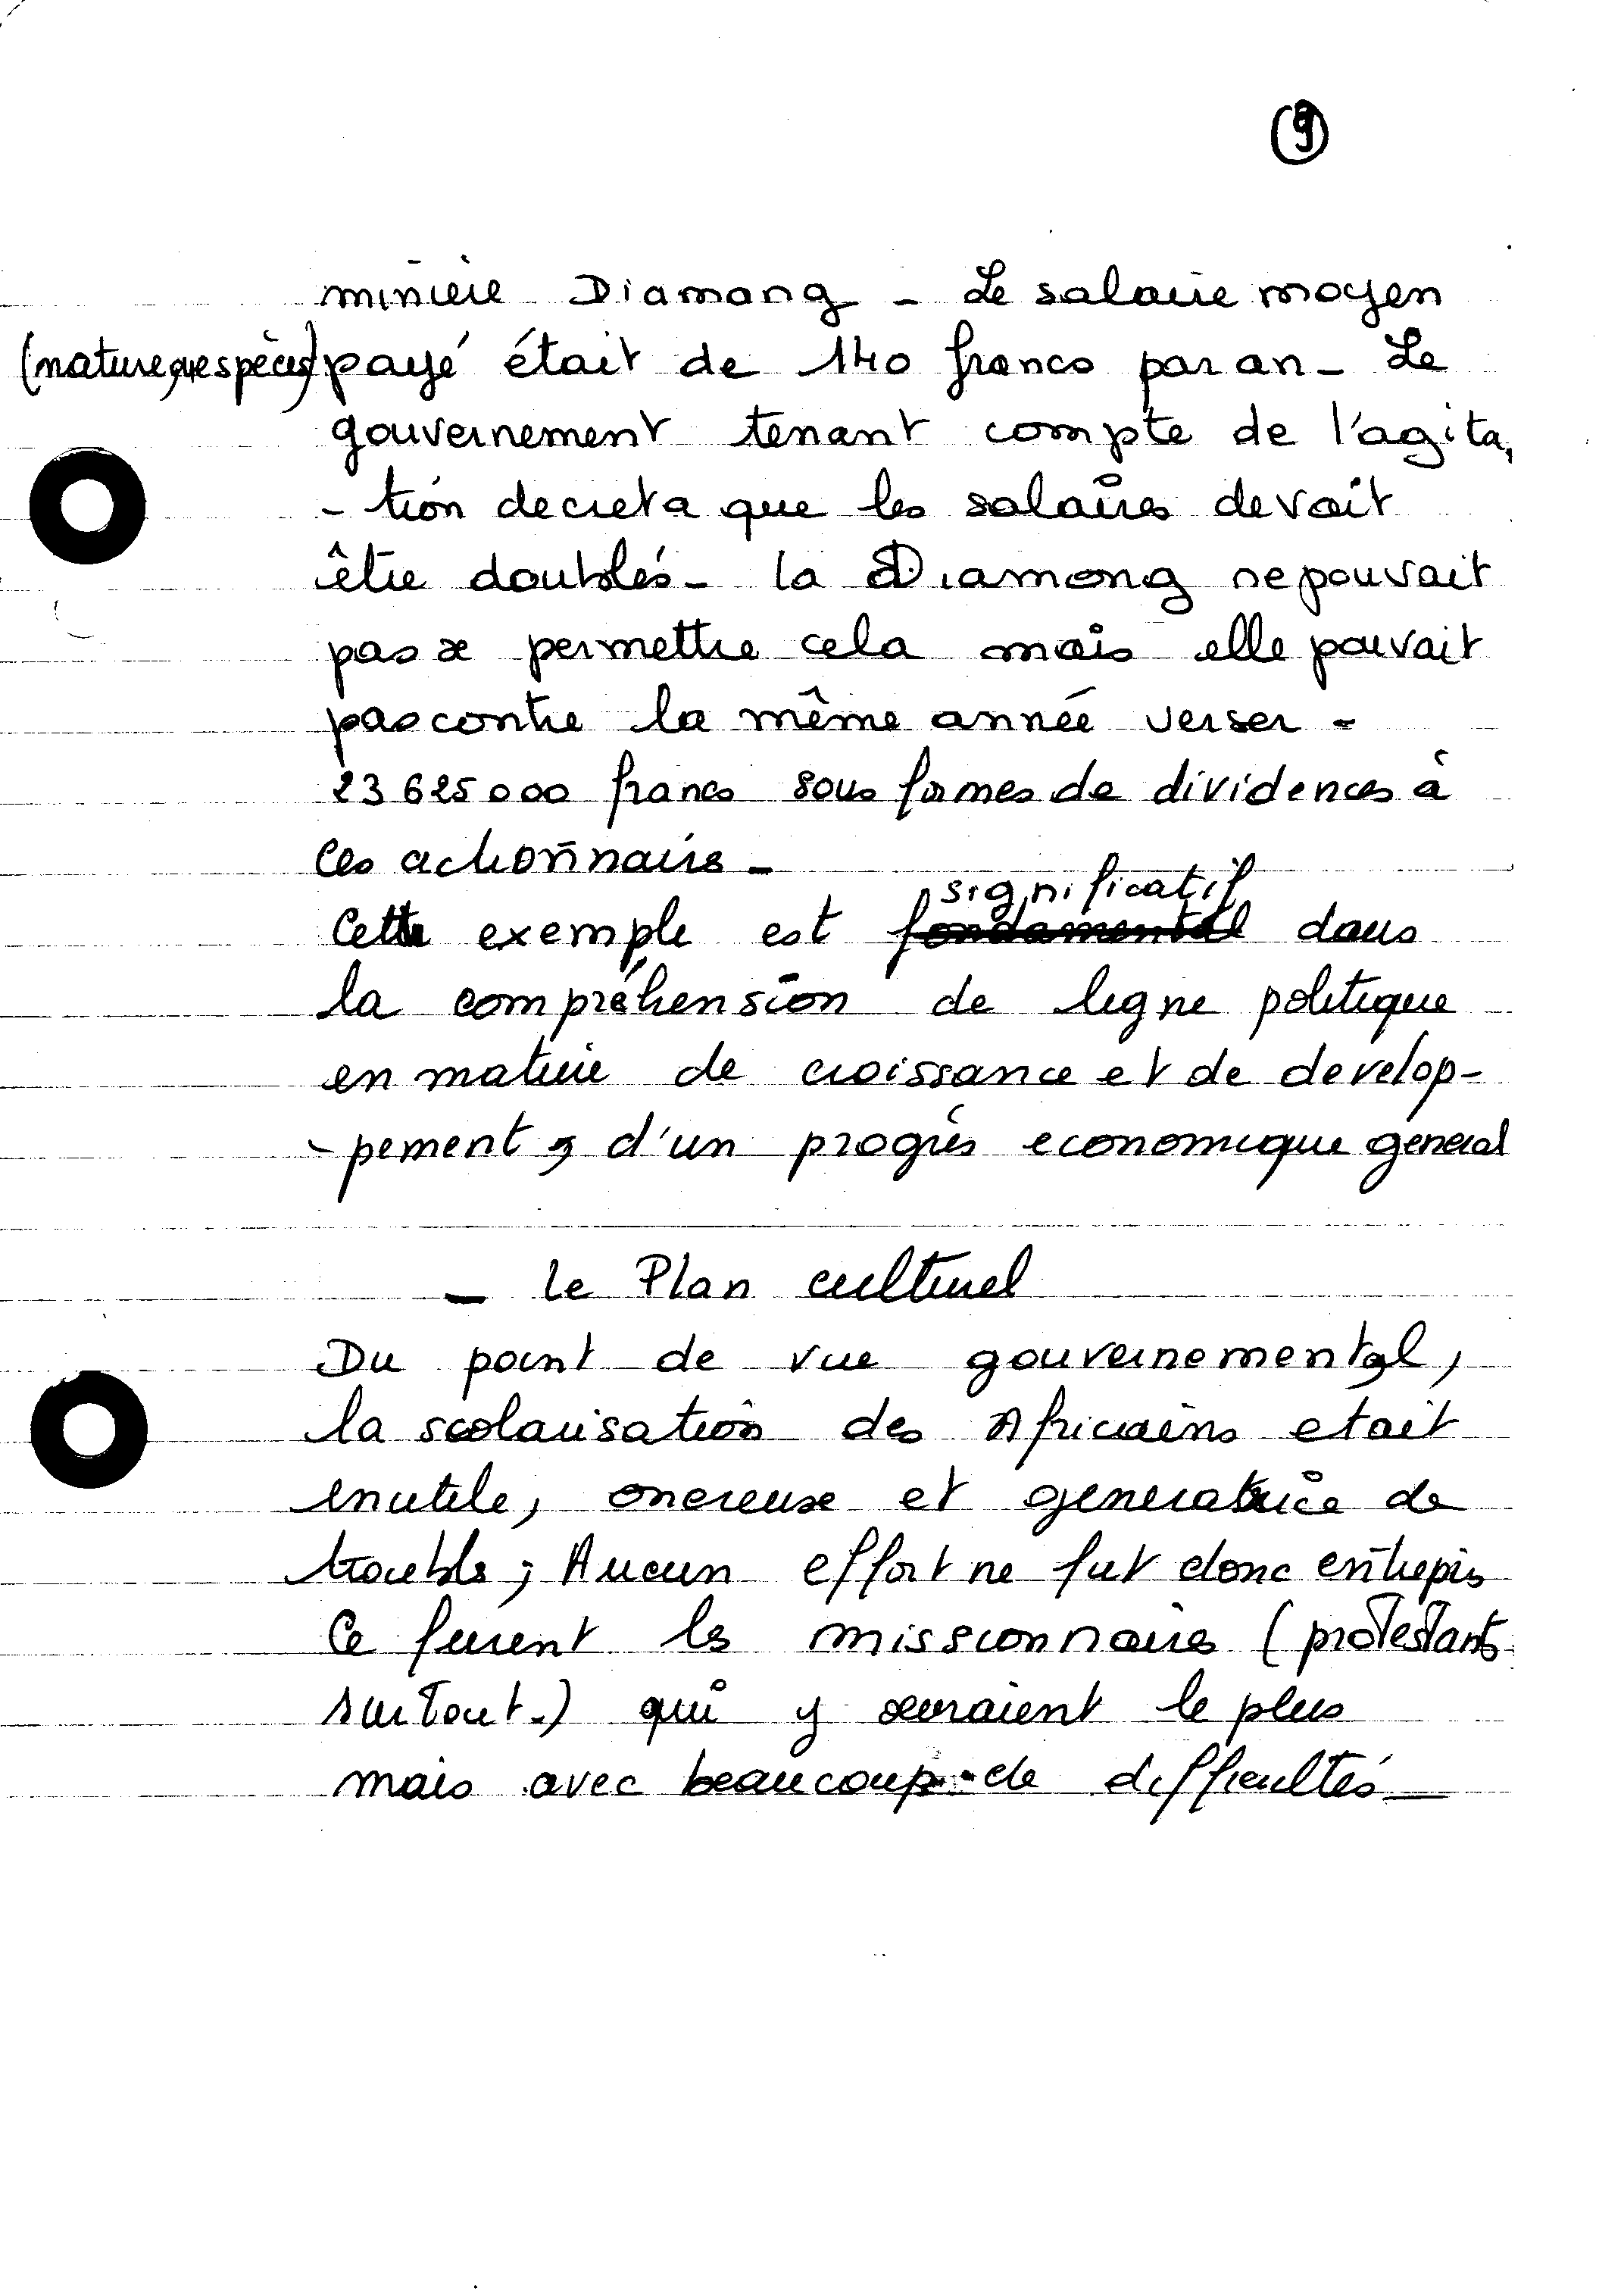 9
minière Diamang - Le salaire moyen
(nature que espèces) payé était de 140 francs par an - Le
gouvernement tenant compte de l'agita,
- tion decreta que les salaires devait
être doublés - la Diamang ne pouvait
pas se permettre cela mais elle pouvait
pascontre la même année verser -
23 625 000 francs sous formes de dividences à
Ces actionnaire -
significatif
Cette exemple est fondamental dans
la compréhension de ligne politique
en matière de croissance et de develop-
- pement, d'un progrès economique general
- Le Plan culturel
Du point de vue gouvernemental,
la scolarisation des Africains etait
inutile, onereuse et generatrice de
trouble ; Aucun effort ne fut donc entrepris
Ce furent les missionnaires (protestants
surtout.) qui y œuraient le plus
mais avec beaucoup de difficultés -